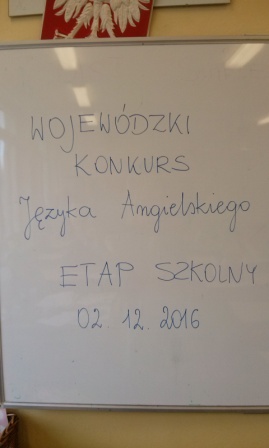 WOJEWÓDZKI
KONKURS
Języka Angielskiego
ETAP SZKOLNY
02. 12. 2016